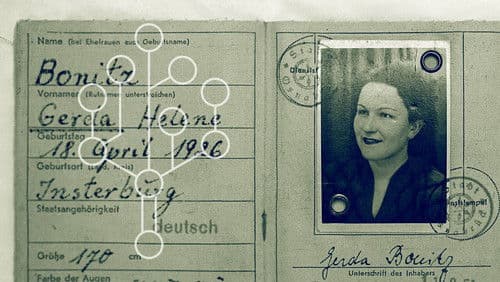 Name (bei Ehefrauen auch Geburtsname)
Bonitz
Vornamen (Rufnamen unterstreichen)
Gerda Helene
Geburtstag
18. April 1926
Geburtsort (Ldkr., Kreis)
Insterburg
Staatsangehörigkeit
deutsch
Größe 170 cm
Farbe der Augen
Dienstst
Stadt
Stadt
nststempel
Gerda Bonitz
Unterschrift des Inhabers